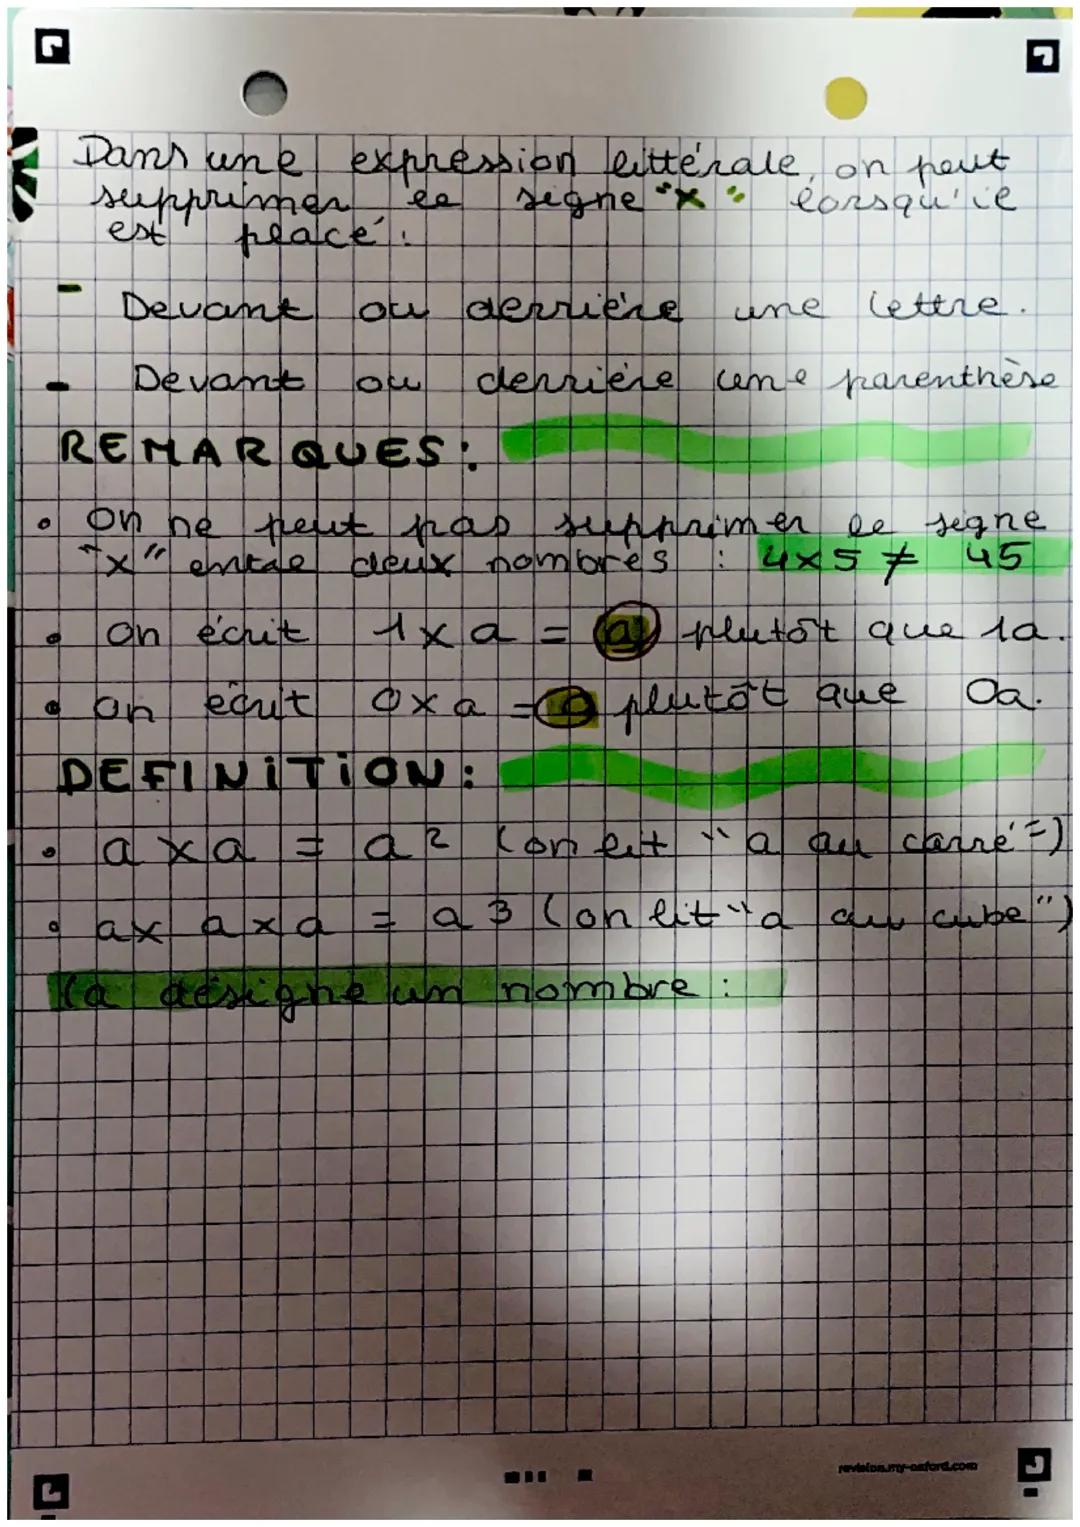 Dans une expression littérale, on peut
supprimer le signe "x" lorsqu'il
est placé :
- Devant ou derrière une lettre.
- Devant ou derrière une parenthèse
REMARQUES :
• On ne peut pas supprimer le signe
"x" entre deux nombres : 4x5 ≠ 45
• On écrit 1 x a = a plutôt que 1a.
• On écrit 0 x a = 0 plutôt que 0a.
DEFINITION :
• a x a = a² (on lit "a au carré")
• a x a x a = a3 (on lit "a au cube")
(a désigne un nombre :
revision.my-oxford.com